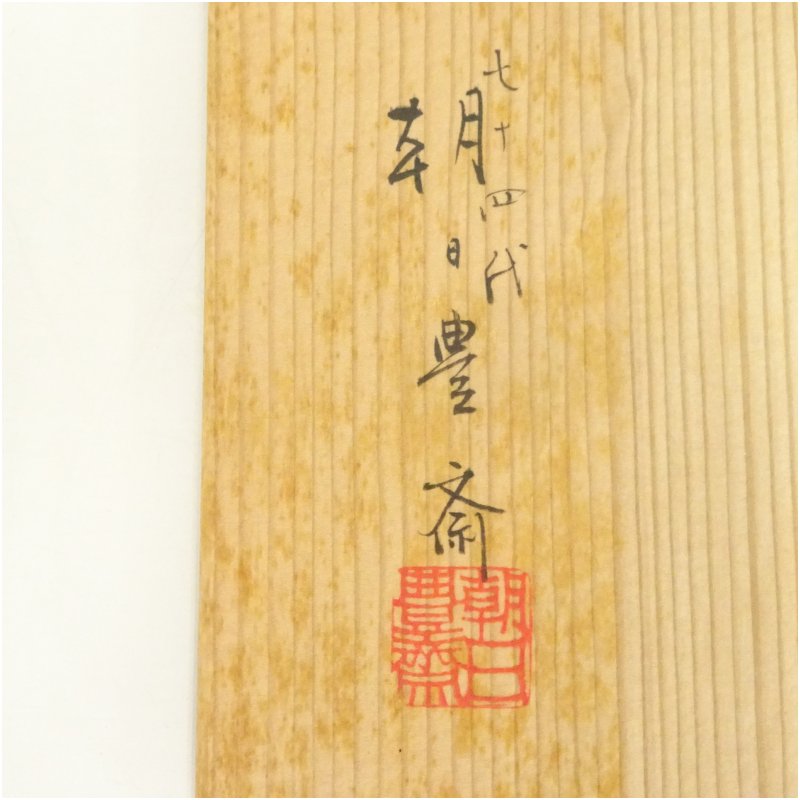 七十四代
朝日豊斎
朝日
豊斎